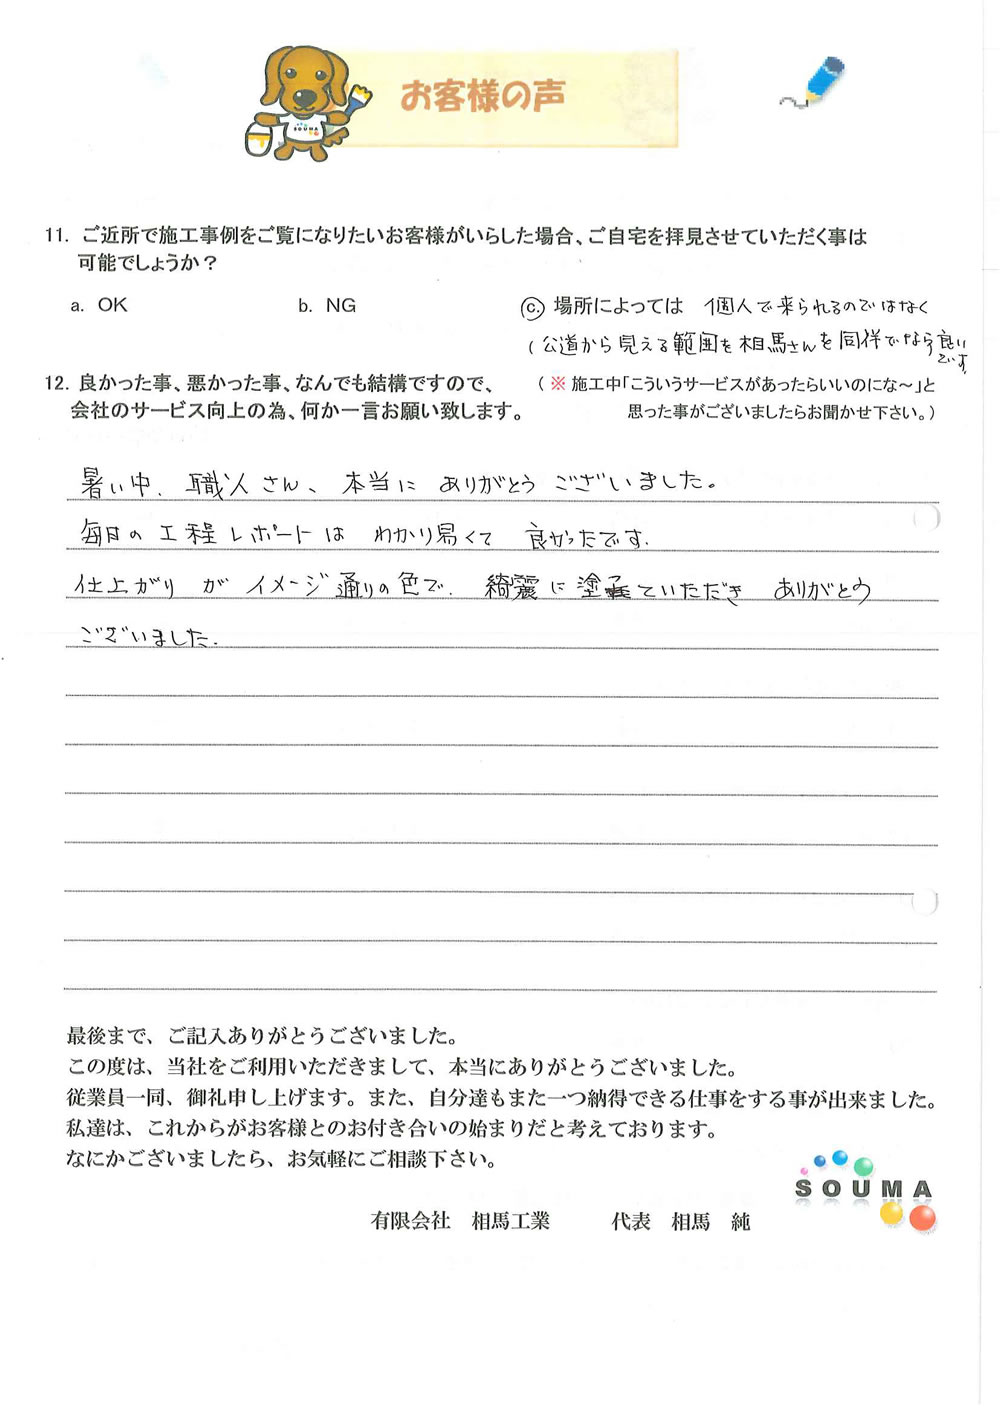 お客様の声
SOUMA
11. ご近所で施工事例をご覧になりたいお客様がいらした場合、ご自宅を拝見させていただく事は
可能でしょうか？
a. OK b. NG c. 場所によっては 個人で来られるのではなく
(公道から見える範囲を相馬さんを同伴でなら良い
です。
12. 良かった事、悪かった事、なんでも結構ですので、 (※ 施工中「こういうサービスがあったらいいのにな～」と
会社のサービス向上の為、何か一言お願い致します。 思った事がございましたらお聞かせ下さい。)
暑い中、職人さん、本当に ありがとう ございました。
毎日の工程レポートは わかり易くて 良かったです.
仕上がり が イメージ通りの色で. 綺麗に塗っていただき ありがとう
ございました.
最後まで、ご記入ありがとうございました。
この度は、当社をご利用いただきまして、本当にありがとうございました。
従業員一同、御礼申し上げます。また、自分達もまた一つ納得できる仕事をする事が出来ました。
私達は、これからがお客様とのお付き合いの始まりだと考えております。
なにかございましたら、お気軽にご相談下さい。
SOUMA
有限会社 相馬工業 代表 相馬 純